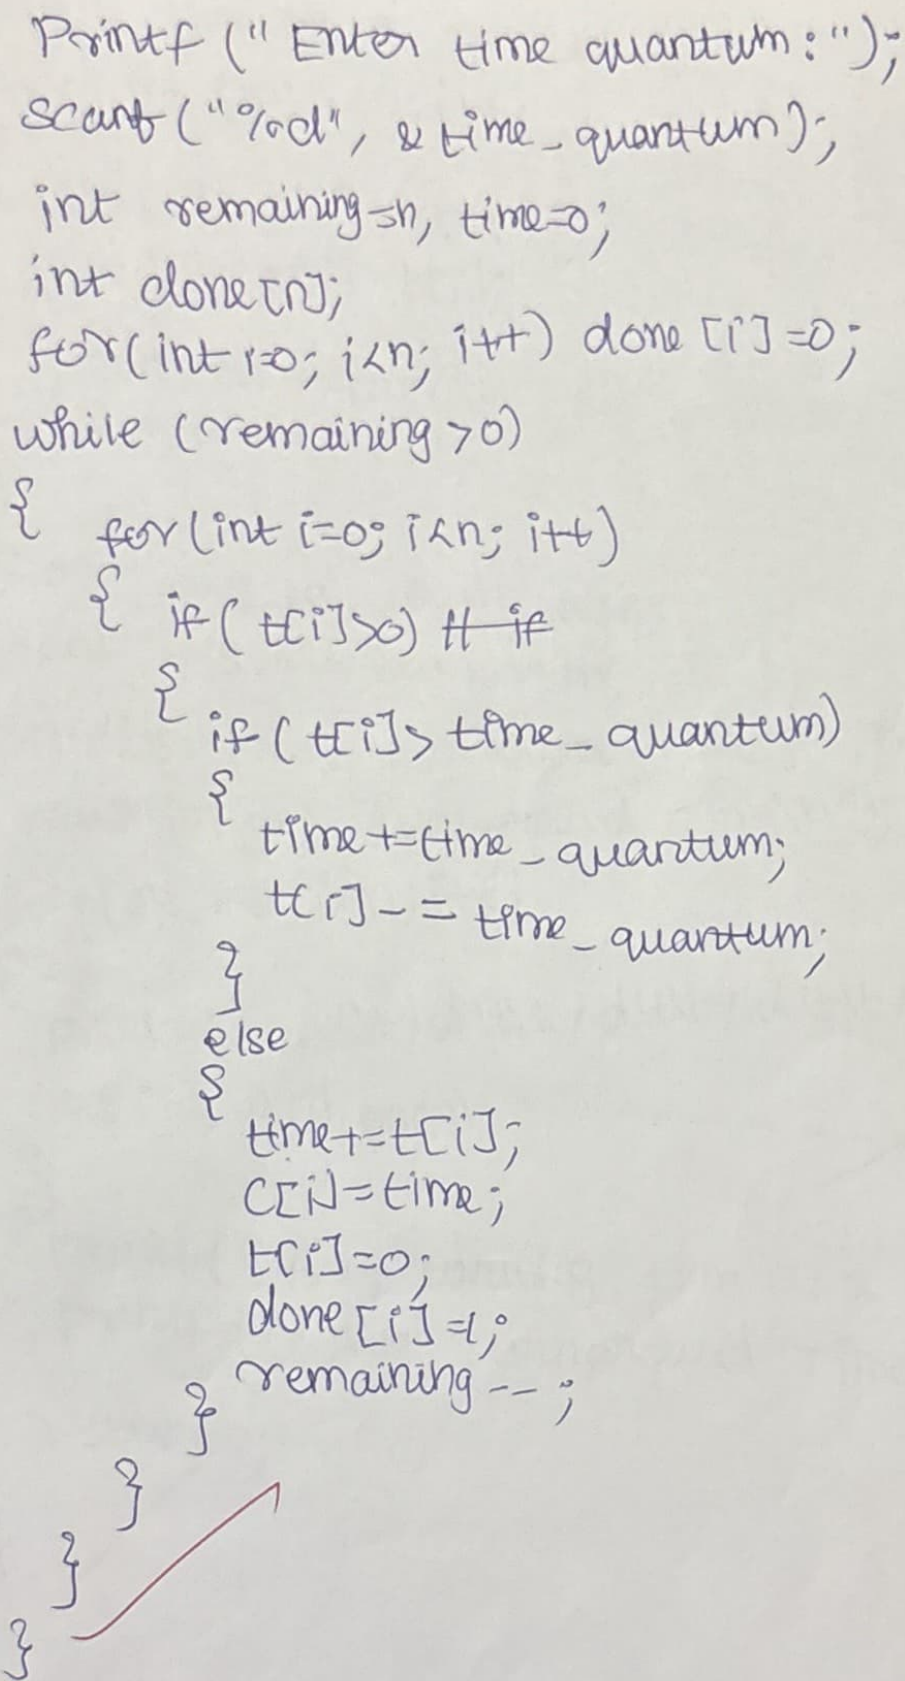 Printf (" Enter time quantum : ");
scanf ("%d", & time_quantum);
int remaining=n, time=0;
int done[n];
for(int i=0; i<n; i++) done [i]=0;
while (remaining >0)
{ for(int i=0; i<n; i++)
{ if( t[i]>0)
{
if( t[i]> time_quantum)
{
time+=time_quantum;
t[i]-= time_quantum;
}
else
{
time+=t[i];
C[i]=time;
t[i]=0;
done [i]=1;
remaining--;
}
}
}
}